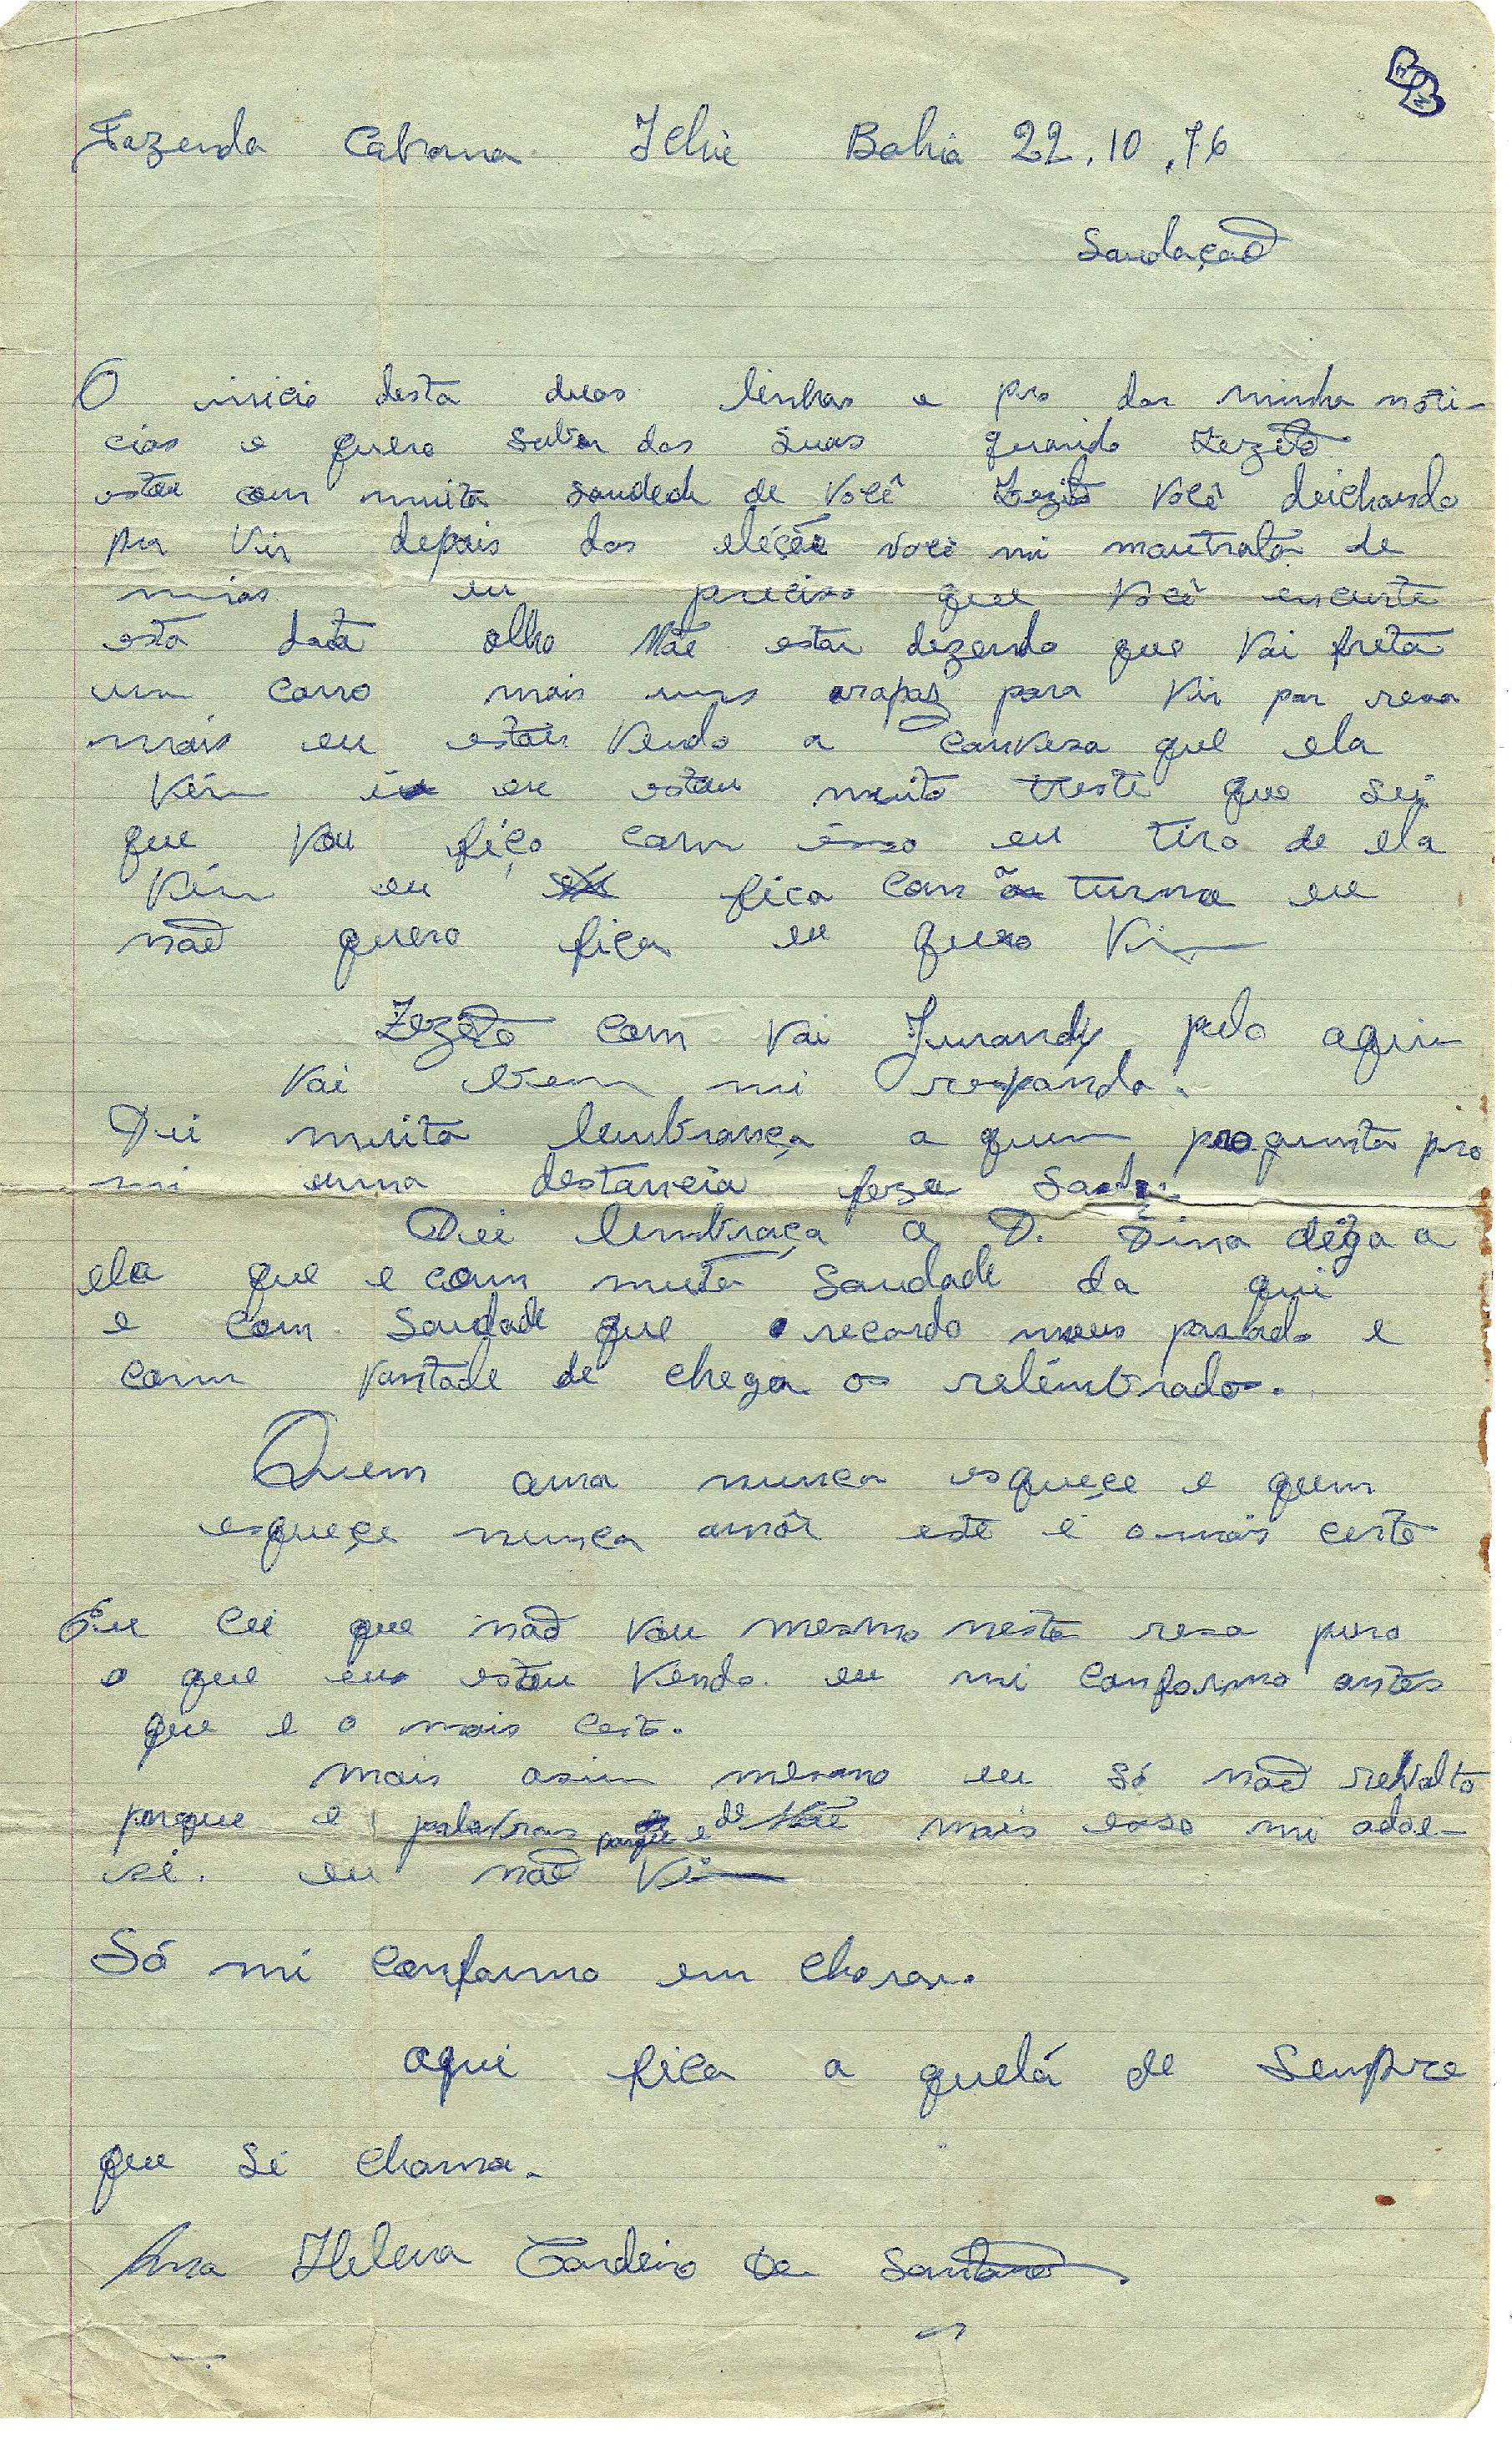 Fazenda Cabrana Ichú Bahia 22.10.76
Saudação
O inicio desta duas linhas e pra dar minha noti-
cias e quero saber das suas querido Zezito
estou com muita saudade de você Zezito você deichando
pra vir depois das eleição você mi mautrata de
mias eu preciso que você encurte
esta data olho Mãe estar dezendo que vai freta
um carro mais uns arapaz para vir par resa
mais eu estou vendo a conversa que ela
vém eu estou muito treste que sei
que vou fiço com isso eu tiro de ela
vém eu fica com as turma eu
não quero fica eu quero vim
Zezito com vai Jurandy pelo aquim
vai bem mi responda.
Dei muita lembrança a quem pregunta pro
mi numa destancia feza
Dei lembraça a D. Dina diga a
ela que e com muita saudade da qui
e com saudade que recordo meus pasado e
com vontade de chega os relembrados.
Quem ama nunca esqueçe e quem
esqueçe nunca amôr este é o mais certo
Eu cei que não vou mesmo nesta resa puro
o que eus estou vendo. eu mi conformo antes
que e o mais certo.
mais asim mesmo eu só não revolto
porque e palavras porque e de Mãe mais esso mi adoe-
si. eu não vim
Só mi conformo em chorar.
aqui fica a quelá de sempre
que si chama.
Ana Helena Cordeiro Da Santos.